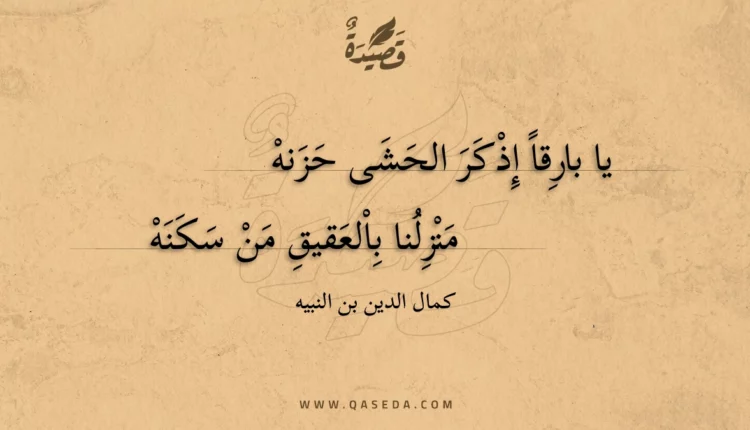 قَصِيدَةٌ
يا بارِقاً إِذْكَرَ الحَشَى حَزَنهْ
مَنْزِلُنا بِالْعَقيقِ مَنْ سَكَنَهْ
كمال الدين بن النبيه
WWW.QASEDA.COM